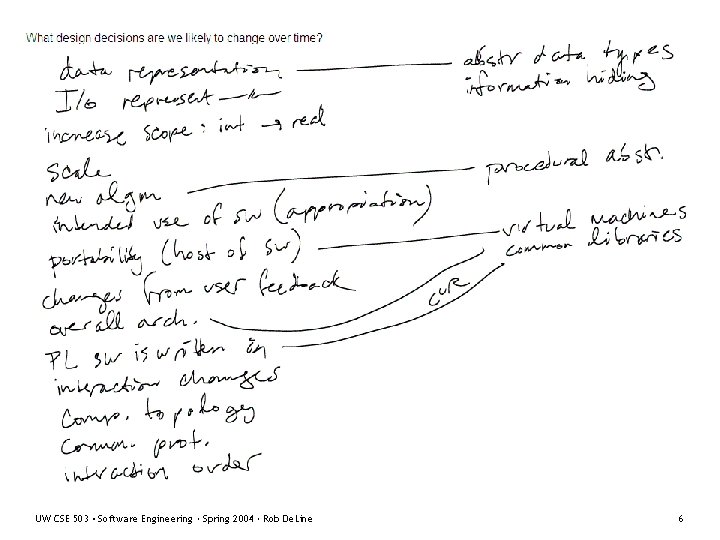 What design decisions are we likely to change over time?
data representation — abstr data types
I/o represent — information hiding
increase scope: int → real
scale
new algm — procedural abstr.
intended use of sw (appropriation)
portability (host of sw) — virtual machines
common libraries
changes from user feedback
CLR
overall arch.
PL sw is written in
interaction changes
Comp. topology
Commun. prot.
interaction order
UW CSE 503 • Software Engineering • Spring 2004 • Rob DeLine 6